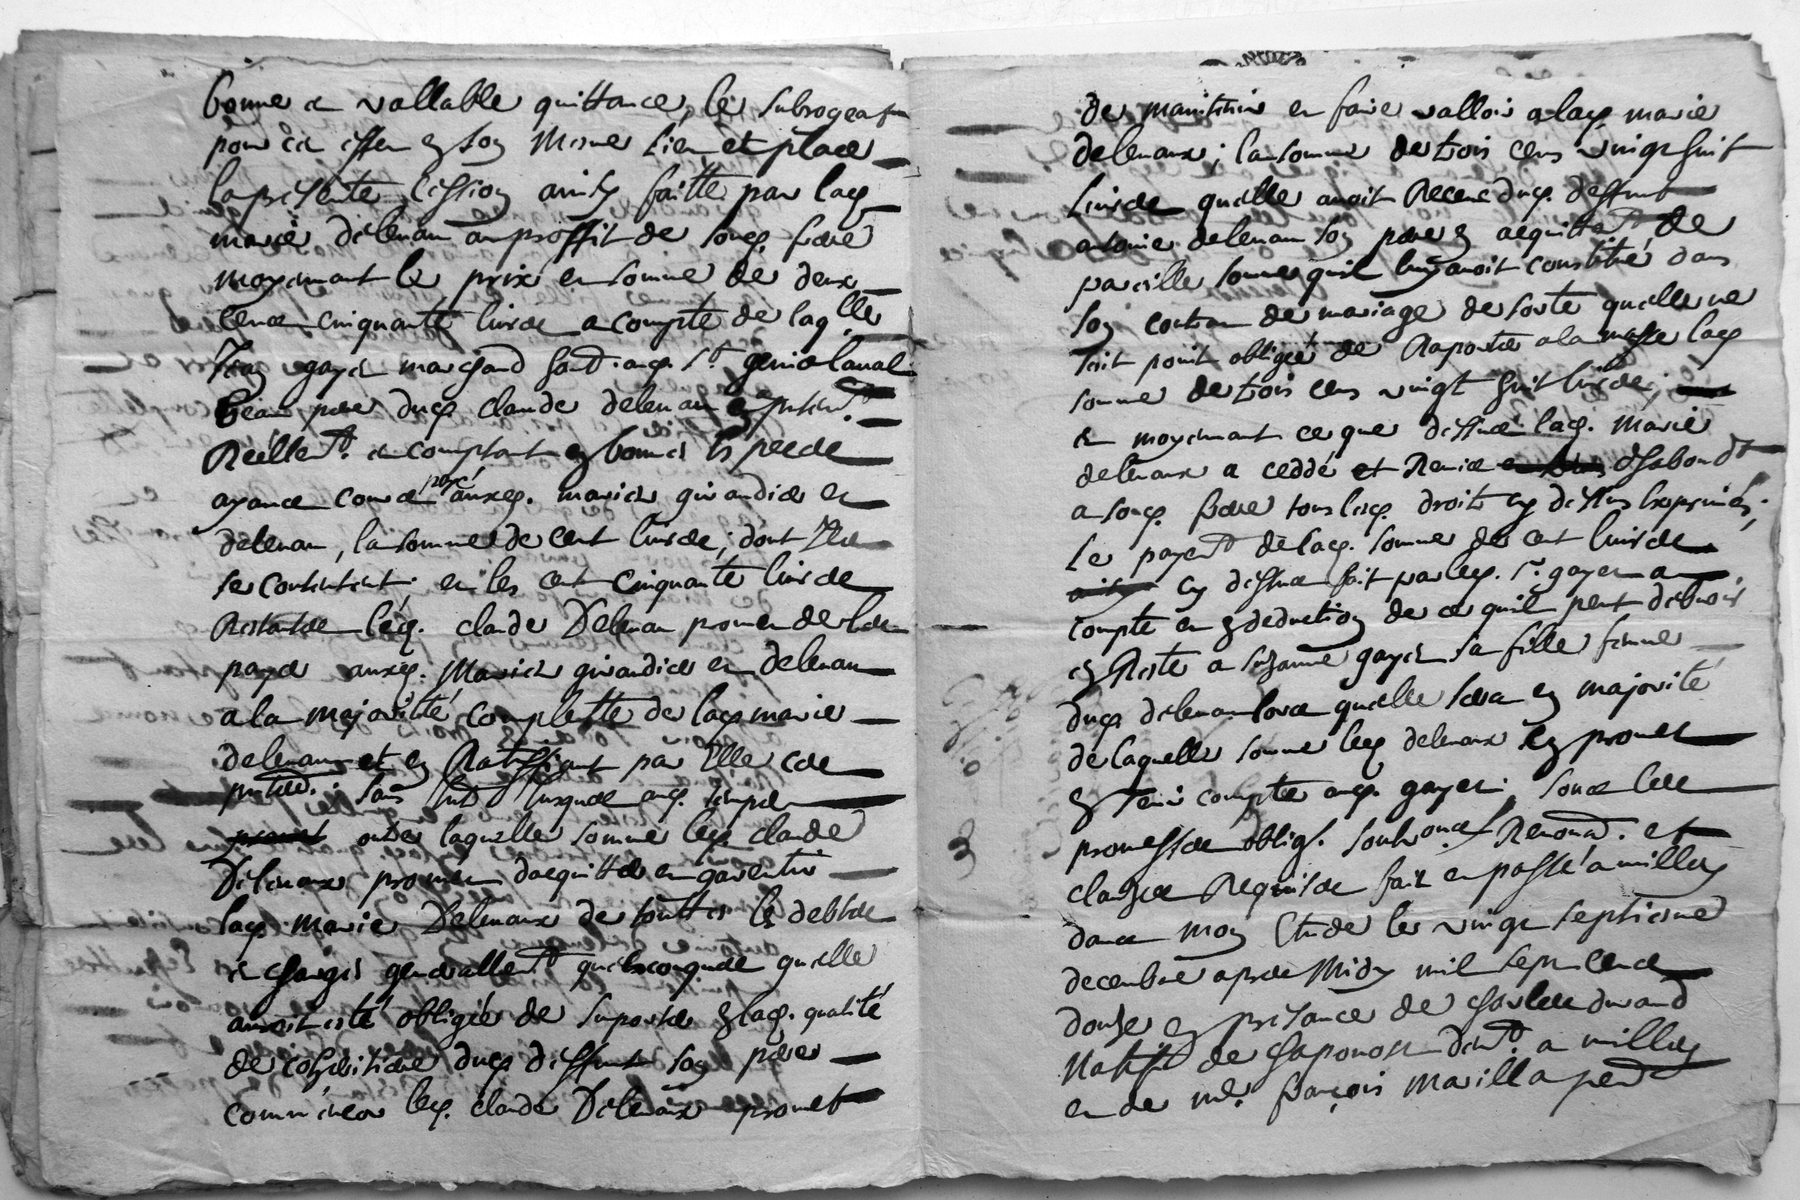 bonne et vallable quittance, les subrogeant
pour cet effet en son mesme lieu et place
la presente cession ainsy faitte par lad.
marie delenaux au proffit de sond. frere
moyennant le prix et somme de deux
cents cinquante livres a compte de laq.lle
gayet marchand hand. aud. St genis laual
beau pere dud. claude delenaux
Reellem.t et comptant en bonnes especes
ayants cours payé auxd. mariés girandier et
delenaux, la somme de cent livres; dont Ils
se contentent; et les cent cinquante livres
Restantes led. claude Delenaux promet de les
payer auxd. Mariés girandier et delenaux
a la majorité complette de lad. marie
delenaux et en Ratiffiant par Elle ces
sans jusques aud. temps
outre laquelle somme led. claude
Delenaux promet d'acquitter et garentir
lad. marie Delenaux de touttes les debtes
et charges generallem.t quelsconques quelle
auroit esté obligée de suporter en lad. qualité
de coheritiere dud. deffunt son pere
comm'encor led. claude Delenaux promet
de maintenir et faire valloir a lad. marie
delenaux; la somme de trois cens vingt huit
Livres quelle auoit Receue dud. deffunt
antoine delenaux son pere en acquittem.t de
pareille somme quil luy auoit constitué dans
son contrat de mariage de sorte quelle ne
soit point obligée de Raporter a la masse lad.
somme de trois cens vingt huit livres;
et moyennant ce que dessus lad. marie
delenaux a ceddé et Remis
a sond. frere tous lesd. droits cy dessus exprimés;
Le payem.t de lad. somme de cent livres
cy dessus fait par led. Sr. gayet a
compte et en deduction de ce quil peut debuoir
et Reste a suzanne gayet sa fille femme
dud. delenaux lors quelle sera en majorité
de laquelle somme led. delenaux promet
en tenir compte aud. gayet; sous les
promesses oblig. Renonã. et
clauses Requises fait et passé a millery
dans mon Etude le vingt septiesme
decembre apres Midy mil sept cents
douze en presence de charles durand
Natif de chaponost dem.t a millery
et de me. françois marilla